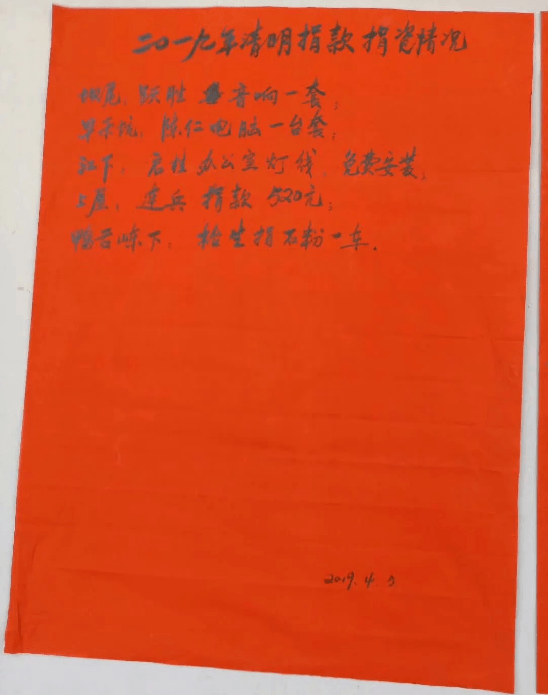 二〇一九年清明捐款捐资情况
坳尾：跃胜 音响一套；
草禾坑：陈仁电脑一台套；
江下：启柱办公室灯线，免费安装；
上屋：建兵捐款520元；
鸭舌崠下：检生捐石粉一车．
2019.4.5